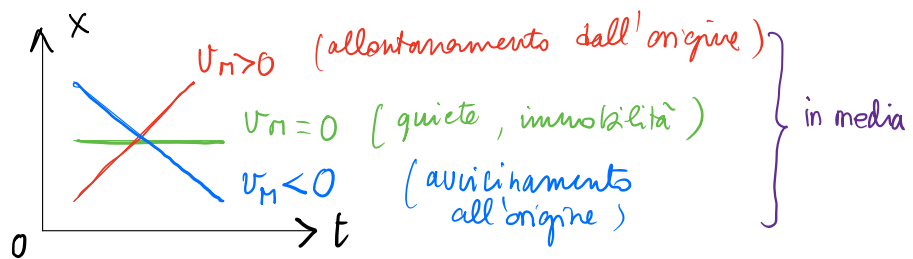 x
v_M>0 (allontanamento dall'origine)
v_M=0 (quiete, immobilità)
in media
v_M<0 (avvicinamento
all'origine)
0
t